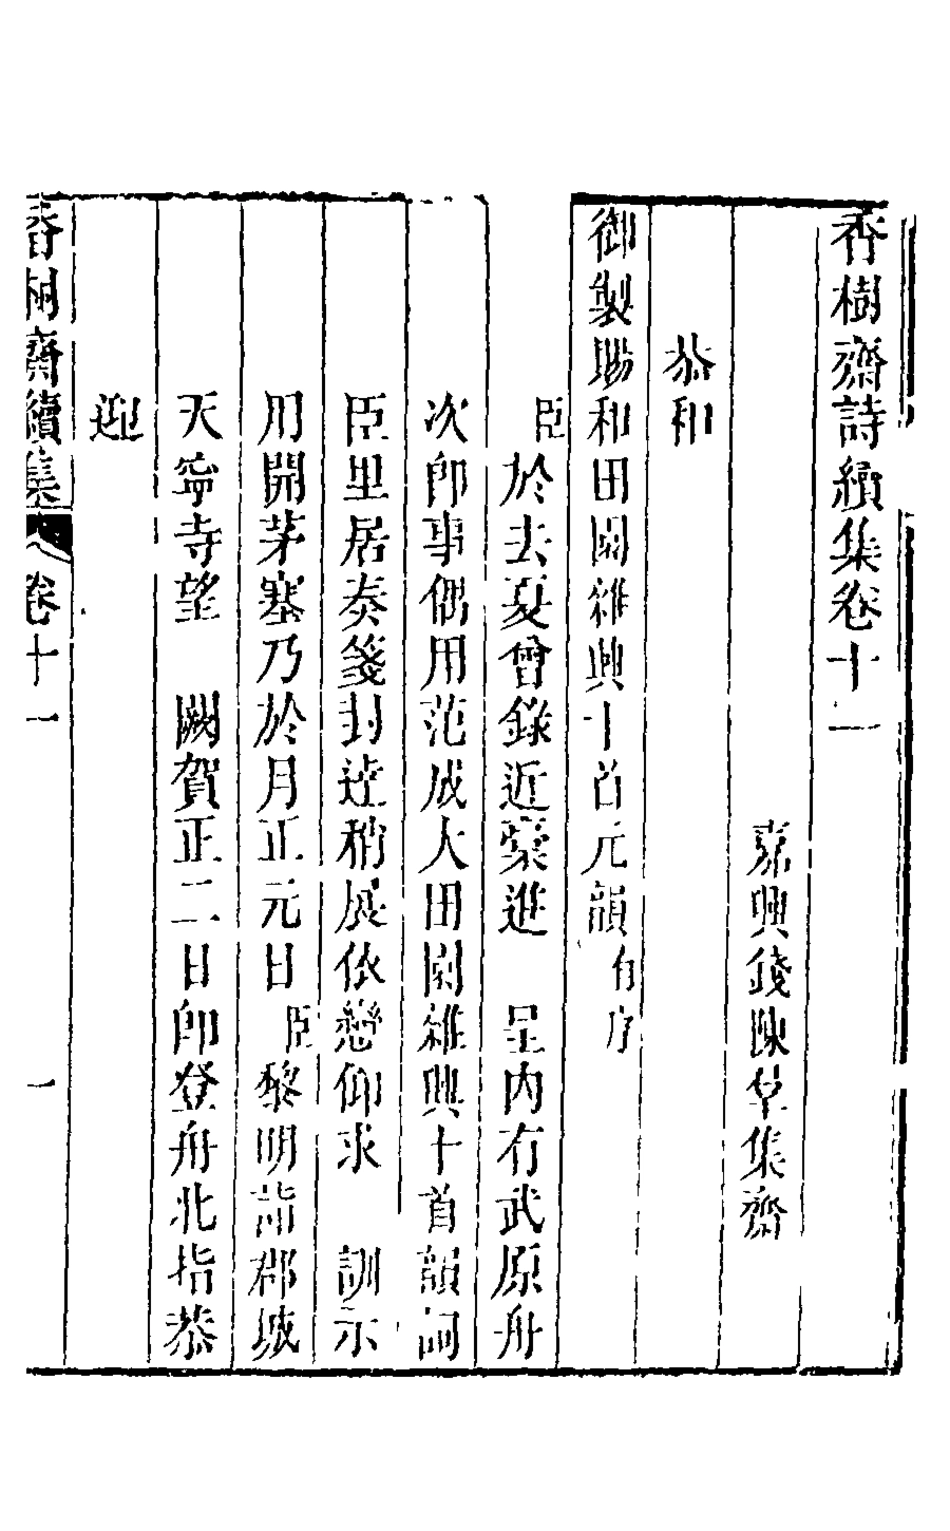 香樹齋詩續集卷十一
嘉興錢陳羣集齋
恭和
御製賜和田園雜興十首元韻有序
臣於去夏曾錄近稾進　呈內有武原舟
次即事偶用范成大田園雜興十首韻詞
臣里居奏箋封達稍展依戀仰求　訓示
用開茅塞乃於月正元日臣黎明詣郡城
天寧寺望　闕賀正二日即登舟北指恭
迎
香樹齋續集　卷十一　一